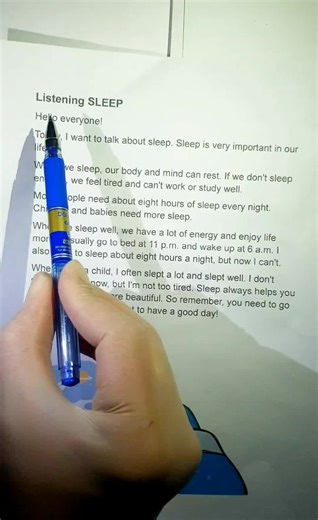 Listening SLEEP
Hello everyone!
I want to talk about sleep. Sleep is very important in our
we sleep, our body and mind can rest. If we don't sleep
we feel tired and can't work or study well.
people need about eight hours of sleep every night.
and babies need more sleep.
sleep well, we have a lot of energy and enjoy life
usually go to bed at 11 p.m. and wake up at 6 a.m. I
also to sleep about eight hours a night, but now I can't.
a child, I often slept a lot and slept well. I don't
now, but I'm not too tired. Sleep always helps you
beautiful. So remember, you need to go
to have a good day!